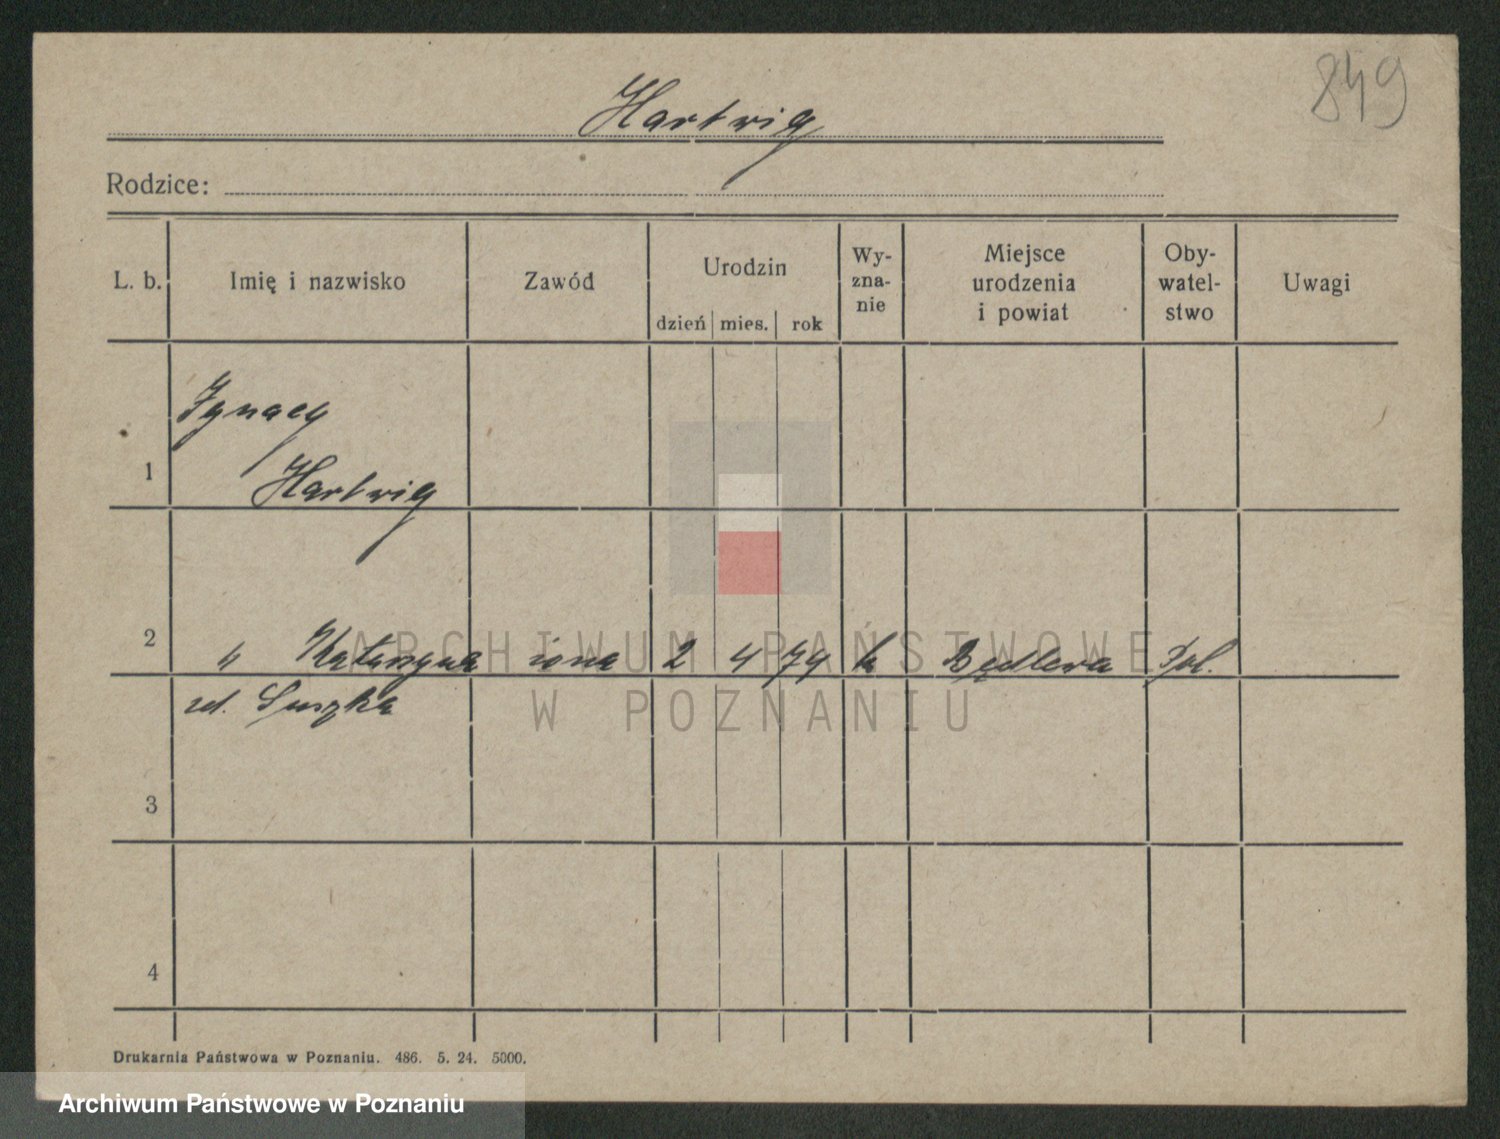 849
Hartwig
Rodzice:
L. b.
Imię i nazwisko
Zawód
Urodzin
dzień mies. rok
Wy-
zna-
nie
Miejsce
urodzenia
i powiat
Oby-
watel-
stwo
Uwagi
1
Ignacy
Hartwig
2
" Katarzyna żona 2 4 74 k Pol.
zd. Suszka
3
4
Drukarnia Państwowa w Poznaniu. 486. 5. 24. 5000.
ARCHIWUM PAŃSTWOWE
W POZNANIU
Archiwum Państwowe w Poznaniu